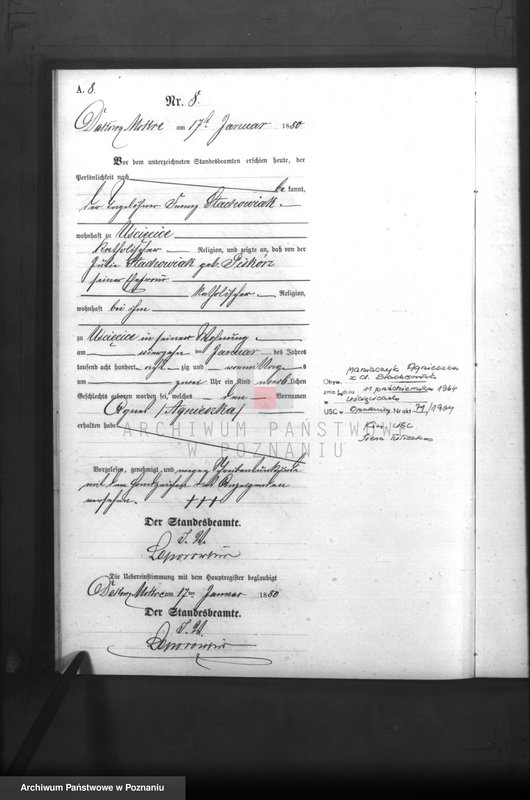 A. 8.
Nr. 8.
Dakowy Mokre am 17ten Januar 1880
Vor dem unterzeichneten Standesbeamten erschien heute, der
Persönlichkeit nach
be kannt,
der Tagelöhner Franz Stachowiak
wohnhaft zu Uścięcice
katholischer Religion, und zeigte an, daß von der
Julie Stachowiak geb. Piskorz
seiner Ehefrau
katholischer Religion,
wohnhaft bei ihm
zu Uścięcice in seiner Wohnung
am vierzehn ten Januar des Jahres
tausend acht hundert acht zig und Morgens
um zwei Uhr ein Kind weiblichen
Geschlechts geboren worden sei, welches den Vornamen
Agnes /Agnieszka/
erhalten habe
Vorgelesen, genehmigt und wegen Schreibensunkunde
mit dem Handzeichen des Anzeigenden
versehen. +++
Der Standesbeamte.
Die Uebereinstimmung mit dem Hauptregister beglaubigt
Dakowy Mokre am 17ten Januar 1880
Der Standesbeamte.
Agnieszka
z d. Stachowiak
11 października 1964
w Uścięcicach
USC w Opalenicy Nr akt 71/1964
Kier. USC
ARCHIWUM PAŃSTWOWE
W POZNANIU
Archiwum Państwowe w Poznaniu